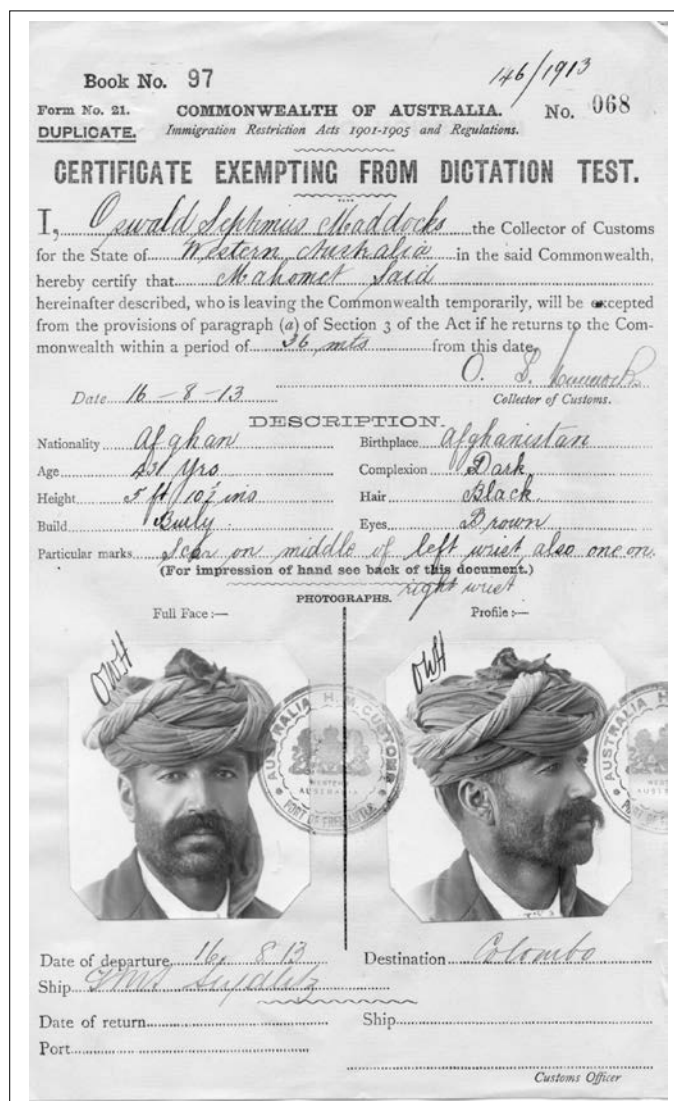 Book No. 97
146/1913
Form No. 21. COMMONWEALTH OF AUSTRALIA. No. 068
DUPLICATE. Immigration Restriction Acts 1901-1905 and Regulations.
CERTIFICATE EXEMPTING FROM DICTATION TEST.
I, Oswald Septimus Maddocks the Collector of Customs
for the State of Western Australia in the said Commonwealth,
hereby certify that Mahomet Said
hereinafter described, who is leaving the Commonwealth temporarily, will be excepted
from the provisions of paragraph (a) of Section 3 of the Act if he returns to the Com-
monwealth within a period of 36 mts from this date.
O. S.
Date 16-8-13 Collector of Customs.
DESCRIPTION.
Nationality Afghan Birthplace Afghanistan
Age yrs Complexion Dark
Height 5 ft 10½ ins Hair Black.
Build Burly. Eyes Brown
Particular marks Scar on middle of left wrist also one on
(For impression of hand see back of this document.)
right wrist
PHOTOGRAPHS.
Full Face :— Profile :—
OWH OWH
AUSTRALIA H.M. CUSTOMS
WESTERN AUSTRALIA
PORT OF FREMANTLE
AUSTRALIA H.
WEST
AUST
PORT OF FRE
Date of departure 16. 8 13 Destination Colombo
Ship
Date of return Ship
Port
Customs Officer